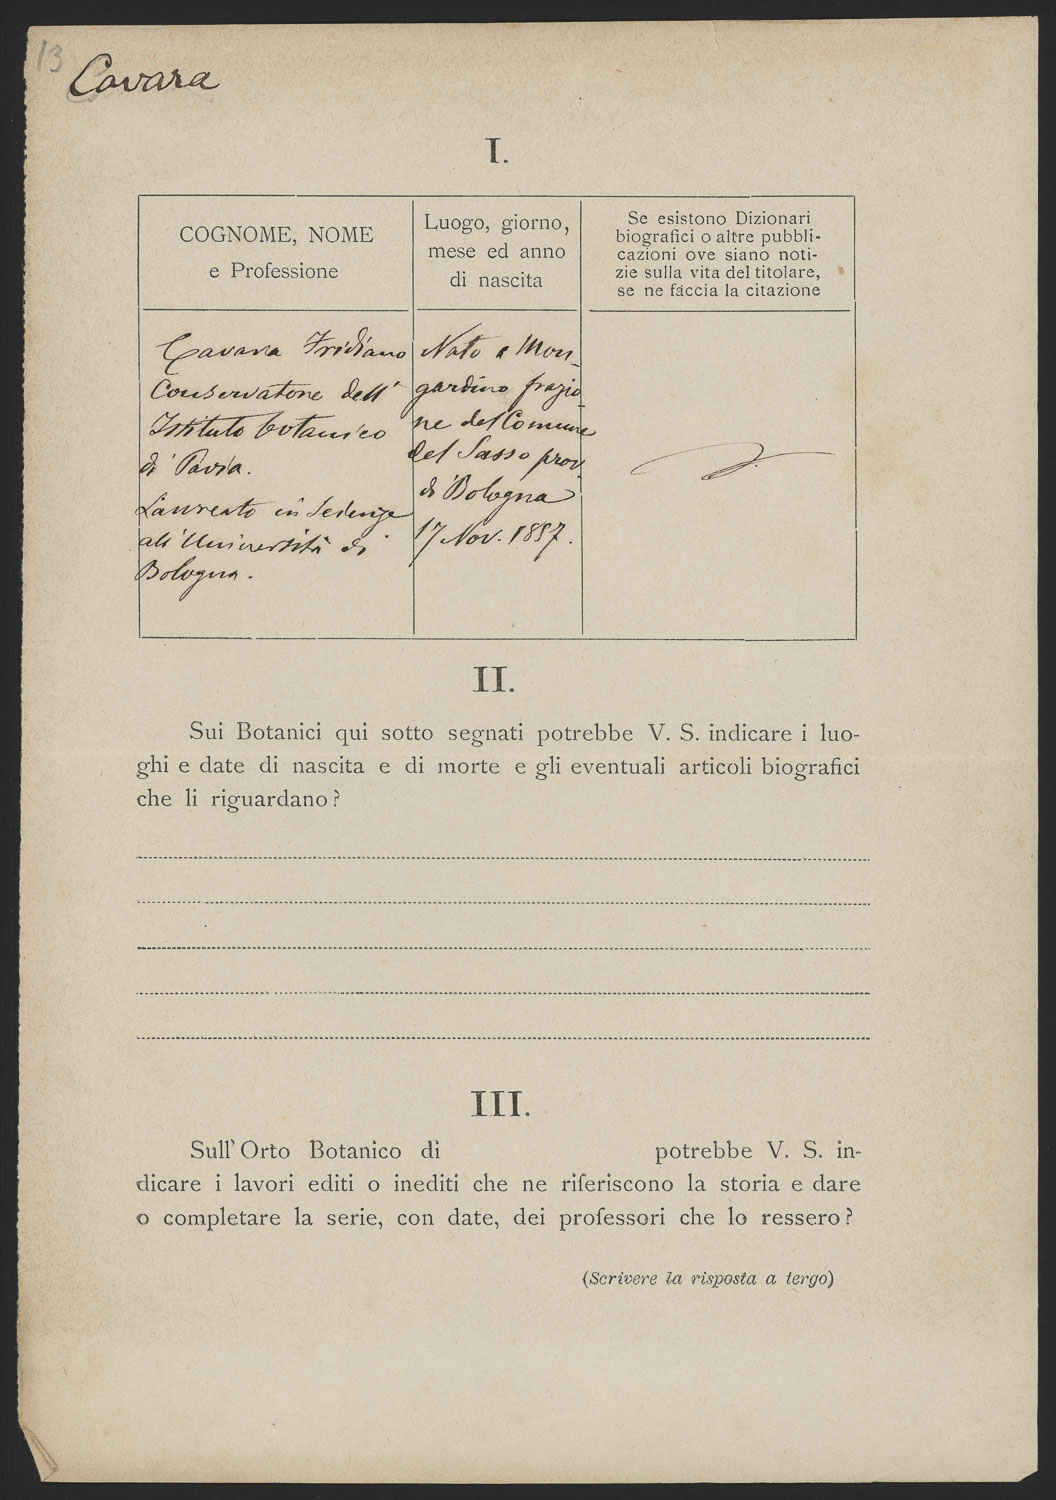 13
Cavara
I.
COGNOME, NOME
e Professione
Luogo, giorno,
mese ed anno
di nascita
Se esistono Dizionari
biografici o altre pubbli-
cazioni ove siano noti-
zie sulla vita del titolare,
se ne faccia la citazione
Cavara Fridiano
Conservatore dell'
Istituto botanico
di Pavia.
Laureato in Scienze
all'Università di
Bologna.
Nato a Mon-
gardino frazio-
ne del Comune
del Sasso prov.
di Bologna
17 Nov. 1857.
II.
Sui Botanici qui sotto segnati potrebbe V. S. indicare i luo-
ghi e date di nascita e di morte e gli eventuali articoli biografici
che li riguardano?
III.
Sull'Orto Botanico di potrebbe V. S. in-
dicare i lavori editi o inediti che ne riferiscono la storia e dare
o completare la serie, con date, dei professori che lo ressero?
(Scrivere la risposta a tergo)